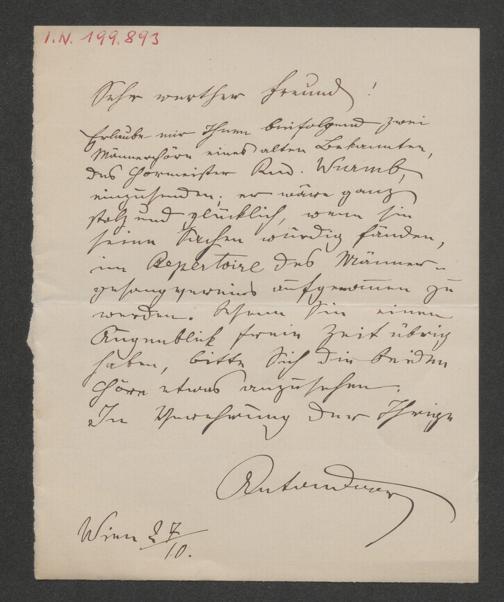 I.N. 199.893
Sehr werther Freund!
Erlaube mir Ihnen beifolgend zwei
Männerchöre eines alten Bekannten,
des Chormeister Rud. Wurmb,
einzusenden; er wäre ganz
stolz und glücklich, wenn sie
seine Sachen würdig fänden,
im Repertoire des Männer-
gesangvereins aufgenommen zu
werden. Wenn Sie einen
Augenblick freie Zeit übrig
haben, bitte Sich die beiden
Chöre etwas anzusehen.
In Verehrung der Ihrige
Wien 27/10.